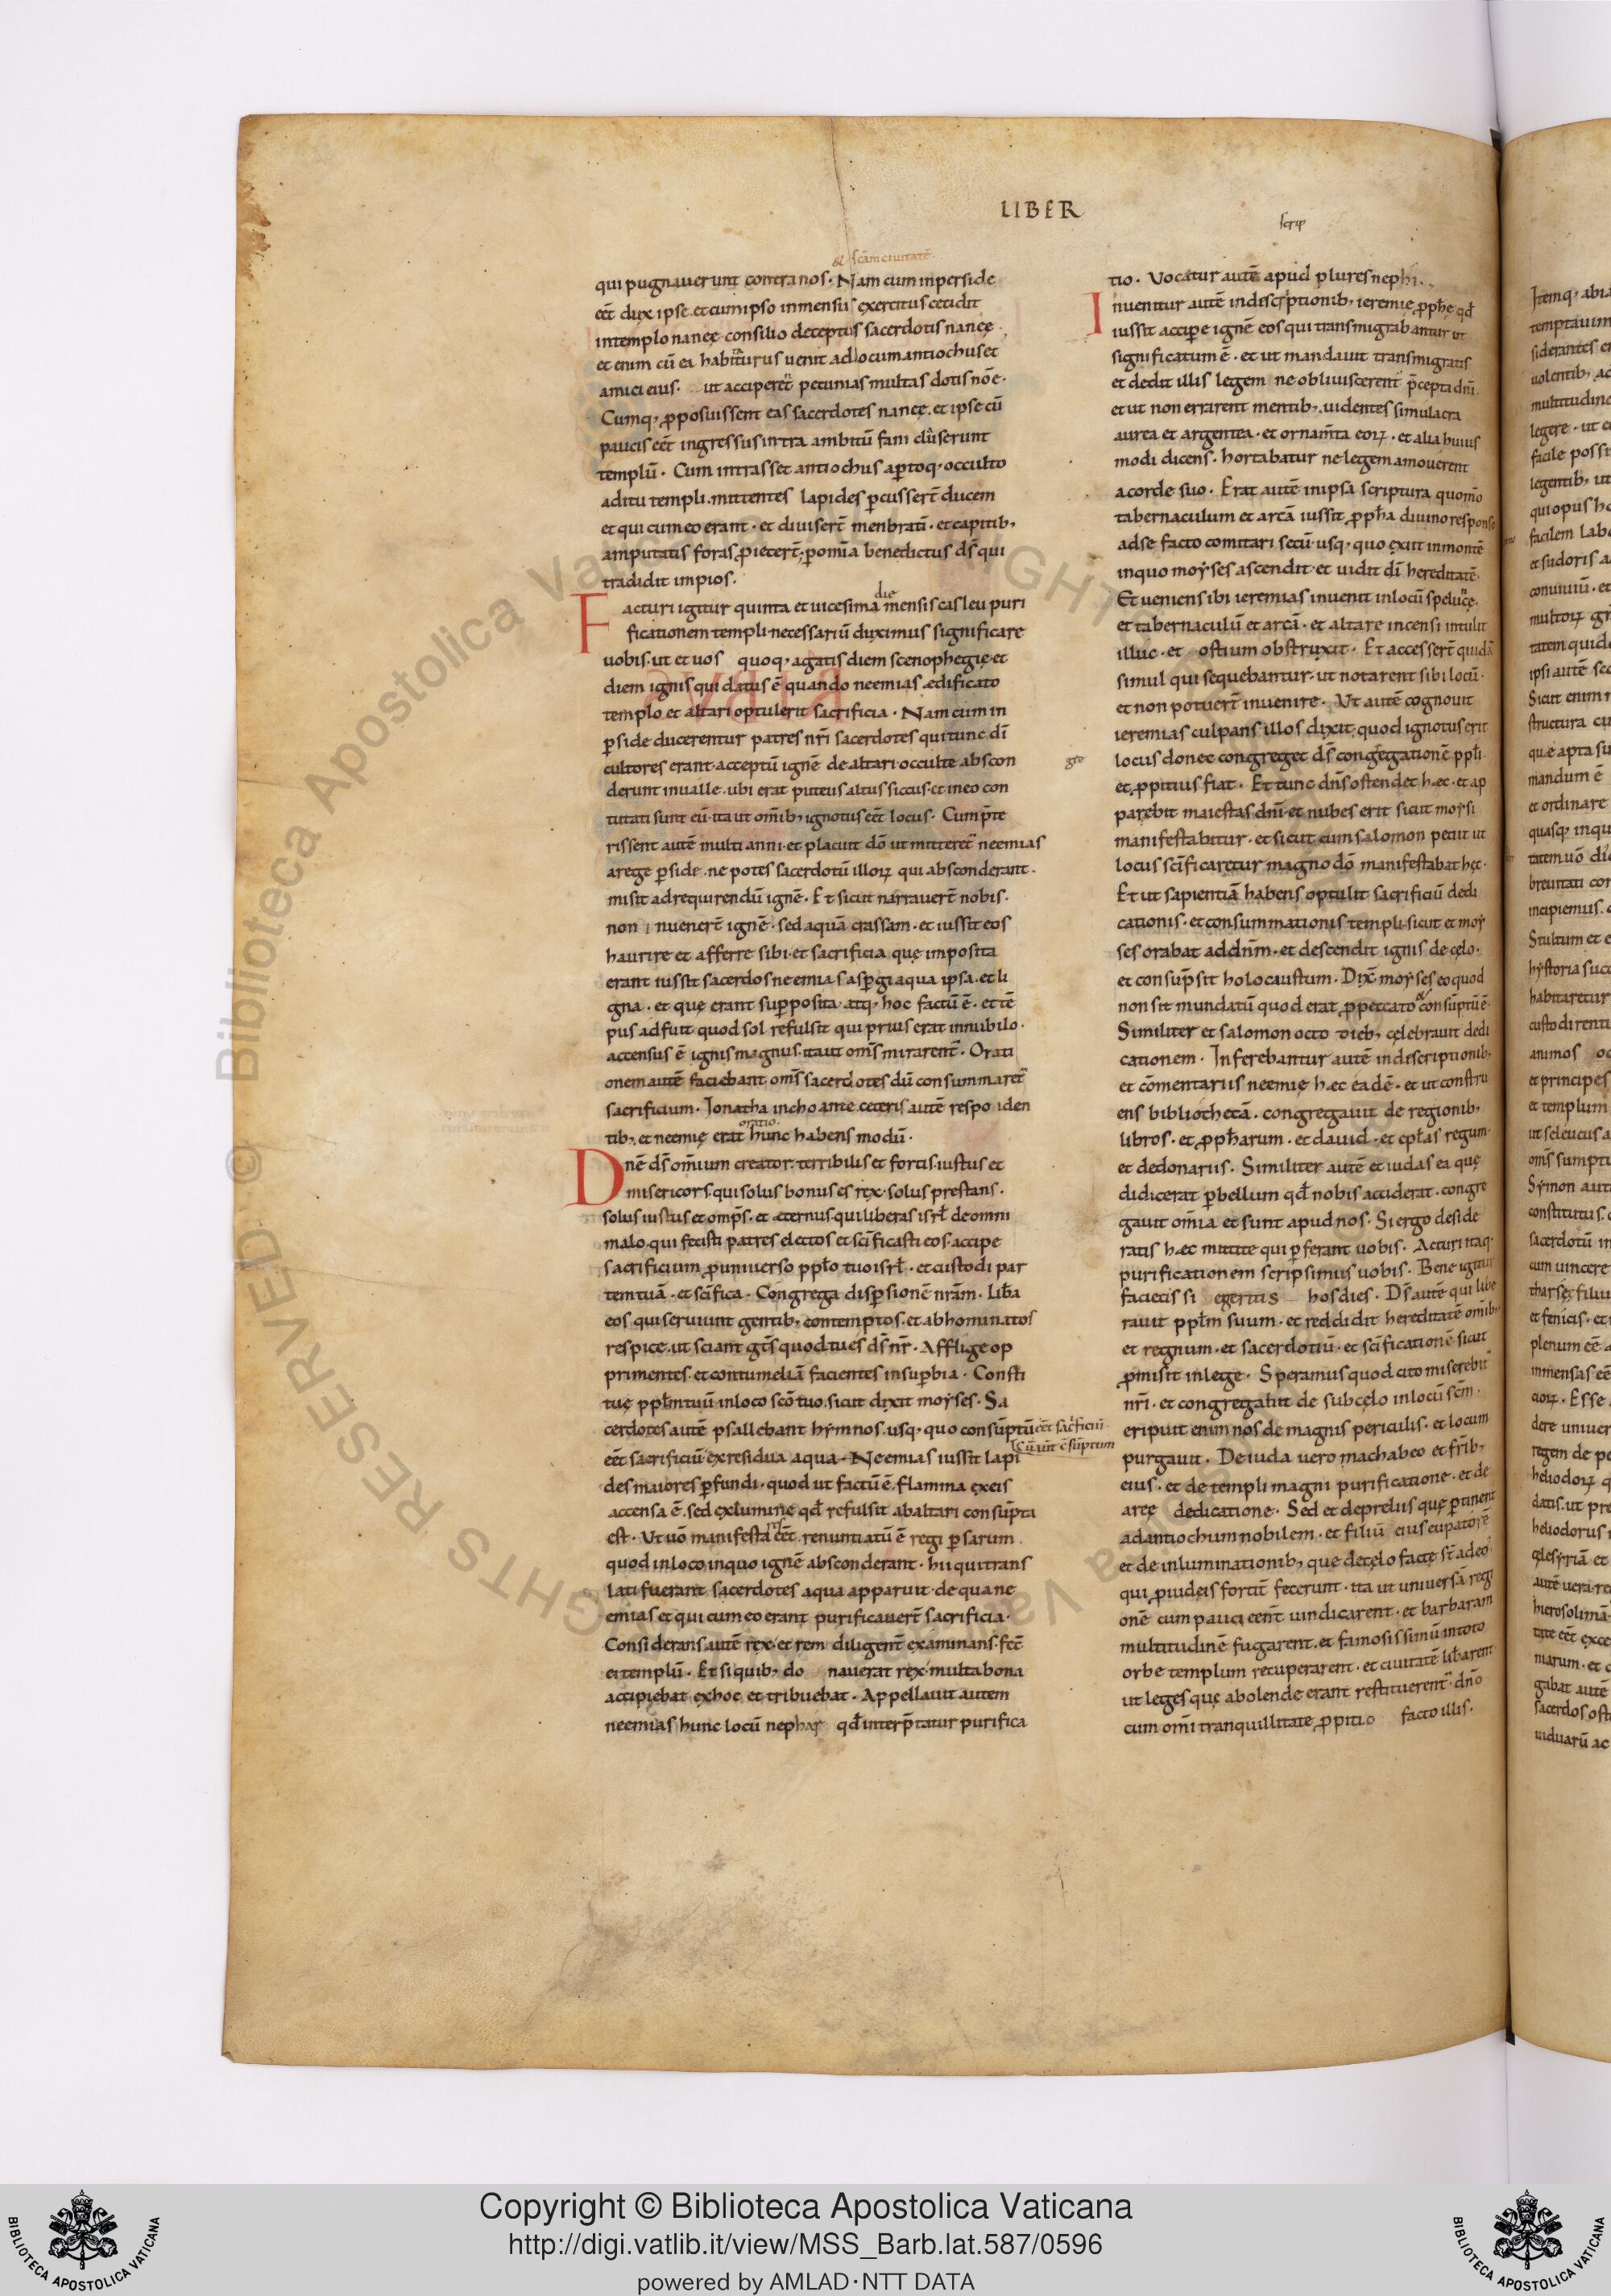 LIBER
scrip
et scām ciuitatē.
qui pugnauerunt contra nos. Nam cum inperside
eēt dux ipse. et cum ipso inmensus exercitus cecidit
intemplo nanęę consilio deceptus sacerdotis nanęę
et enim cū ea habitaturus uenit ad locum antiochus et
amici eius. ut acciperet̄ pecunias multas dotis noē.
Cumq; p̄posuissent eas sacerdotes nanęę. et ipse cū
paucis eēt ingressus intra ambitū fani clūserunt
templū. Cum intrasset antiochus aptoq; occulto
aditu templi. mittentes lapides pcussert̄ ducem
et qui cum eo erant. et diuisert̄ menbratī. et capitib;
amputatis foras p̄iecert̄. p omīa benedictus ds̄ qui
tradidit impios.
die
Facturi igitur quinta et uicesima mensis casleu puri
ficationem templi. necessariū duximus significare
uobis. ut et uos quoq; agatis diem scenophegię. et
diem ignis qui datus ē quando neemias. ędificato
templo et altari optulerit sacrificia. Nam cum in
pside ducerentur patres nrī sacerdotes qui tunc dī
cultores erant. acceptū ignē de altari. occulte abscon
derunt inualle. ubi erat puteus altus siccus. et ineo con
tutati sunt eū. ita ut omīb; ignotus eēt locus. Cum p̄te
rissent autē multi anni. et placuit dō ut mitteret̄ neemias
arege pside. ne potes sacerdotū illoꝝ qui absconderant.
misit ad requirendū ignē. Et sicut narrauert̄ nobis.
non inuenert̄ ignē. sed aquā crassam. et iussit eos
haurire et afferre sibi. et sacrificia quę imposita
erant iussit sacerdos neemias aspgi aqua ipsa. et li
gna. et quę erant supposita. atq; hoc factū ē. et tē
pus adfuit quod sol refulsit qui prius erat innubilo.
accensus ē ignis magnus. itaut oms̄ mirarent̄. Orati
onem autē faciebant oms̄ sacerdotes dū consummaret̄
sacrificium. Ionatha inchoante ceteris autē responden
oratio.
tib; et neemię erat hunc habens modū.
Dnē ds̄ omīum creator. terribilis et fortis. iustus et
misericors. qui solus bonus es rex. solus prestans.
solus iustus et omps̄. et ęternus. qui liberas isrl̄ de omni
malo. qui fecisti patres electos et scīficasti eos. accipe
sacrificium p̄uniuerso ppl̄o tuo isrl̄. et custodi par
tem tuā. et scīfica. Congrega dispsionē nrām. liba
eos qui seruiunt gentib; contemptos. et abhominatos
respice. ut sciant gts̄ quod tu es ds̄ nr̄. Afflige op
primentes. et contumeliā facientes insupbia. Consti
tue ppl̄m tuū inloco scō tuo. sicut dixit moyses. Sa
cerdotes autē psallebant hymnos. usq; quo consūptū eēt sacficiū
eēt sacrificiū exresidua aqua. Neemias iussit lapi
des maiores pfundi. quod ut factū ē. flamma exeis
accensa ē. sed exlumine qd̄ refulsit abaltari consūpta
est. Ut uō manifesta res eēt. renuntiatū ē regi psarum
quod inloco. inquo ignē absconderant. hii qui trans
lati fuerant sacerdotes aqua apparuit. de qua ne
emias et qui cum eo erant purificauert̄ sacrificia.
Considerans autē rex. et rem diligent̄ examinans. fec̄
ei templū. Et si quib; do nauerat rex. multa bona
accipiebat exhoc. et tribuebat. Appellauit autem
neemias hunc locū nephar qd̄ interp̄tatur purifica
tio. Vocatur autē apud plures nephi.
Inuenitur autē indescrptionib; ieremię pph̄ę qd̄
iussit accipe ignē eos qui transmigrabantur ut
significatum ē. et ut mandauit transmigratis
et dedit illis legem ne obliuiscerent̄ p̄cepta dnī.
et ut non errarent mentib; uidentes simulacra
aurea et argentea. et ornam̄ta eoꝝ. et alia huius
modi dicens. hortabatur ne legem amouerent
acorde suo. Erat autē inipsa scriptura quomō
tabernaculum et arcā iussit pph̄a diuino responso
adse facto comitari secū. usq; quo exiit inmontē
inquo moyses ascendit. et uidit dī hereditatē.
Et ueniens ibi ieremias inuenit inlocū speluncę.
et tabernaculū et arcā. et altare incensi intulit
illuc. et ostium obstruxit. Et accessert̄ quidā
simul qui sequebantur. ut notarent sibi locū.
et non potuert̄ inuenire. Ut autē cognouit
ieremias culpans illos dixit. quod ignotus erit
locus donec congreget ds̄ congregationē ppl̄i.
et p̄pitius fiat. Et tunc dns̄ ostendet hęc. et ap
parebit maiestas dnī. et nubes erit sicut moysi
manifestabitur. et sicut cum salomon petiit ut
locus scīficaretur magno dō manifestabat hęc.
Et ut sapientiā habens optulit sacrificiū dedi
cationis. et consummationis templi. sicut et moy
ses orabat ad dnm̄. et descendit ignis de cęlo.
et consūpsit holocaustum. Dix̄ moyses eo quod
non sit mundatū quod erat p̄peccato et consūptū ē.
Similiter et salomon octo dieb; cęlebrauit dedi
cationem. Inferebantur autē indescriptionib;
et cōmentariis neemię hęc eadē. et ut constru
ens bibliothecā. congregauit de regionib;
libros. et pph̄arum. et dauid. et epl̄as regum.
et dedonariis. Similiter autē et iudas ea quę
didicerat pbellum qd̄ nobis acciderat. congre
gauit omīa et sunt apud nos. Si ergo deside
ratis hęc mittite qui pferant uobis. Acturi itaq;
purificationem scripsimus uobis. Bene igitur
facietis si egeritis hos dies. Ds̄ autē qui libe
rauit ppl̄m suum. et reddidit hereditatē omīb;
et regnum. et sacerdotiū. et scīficationē sicut
p̄misit inlege. Speramus quod cito miserebit̄
nrī. et congregabit de subcęlo inlocū scm̄.
eripuit enim nos de magnis periculis. et locum
purgauit. De iuda uero machabeo et frīb;
eius. et de templi magni purificatione. et de
aręę dedicatione. Sed et depreliis quę ptinent
adantiochum nobilem. et filiū eius eupatorē
et de inluminationib; quę decęlo factę st̄ adeo
qui p̄iudeis fortit̄ fecerunt. ita ut uniuersā regi
onē cum pauci eent̄ uindicarent. et barbaram
multitudinē fugarent. et famosissimū intoto
orbe templum recuperarent. et ciuitatē libarent
ut leges quę abolende erant restituerent̄. dnō
cum omī tranquillitate p̄pitio facto illis.
Copyright © Biblioteca Apostolica Vaticana
http://digi.vatlib.it/view/MSS_Barb.lat.587/0596
powered by AMLAD·NTT DATA